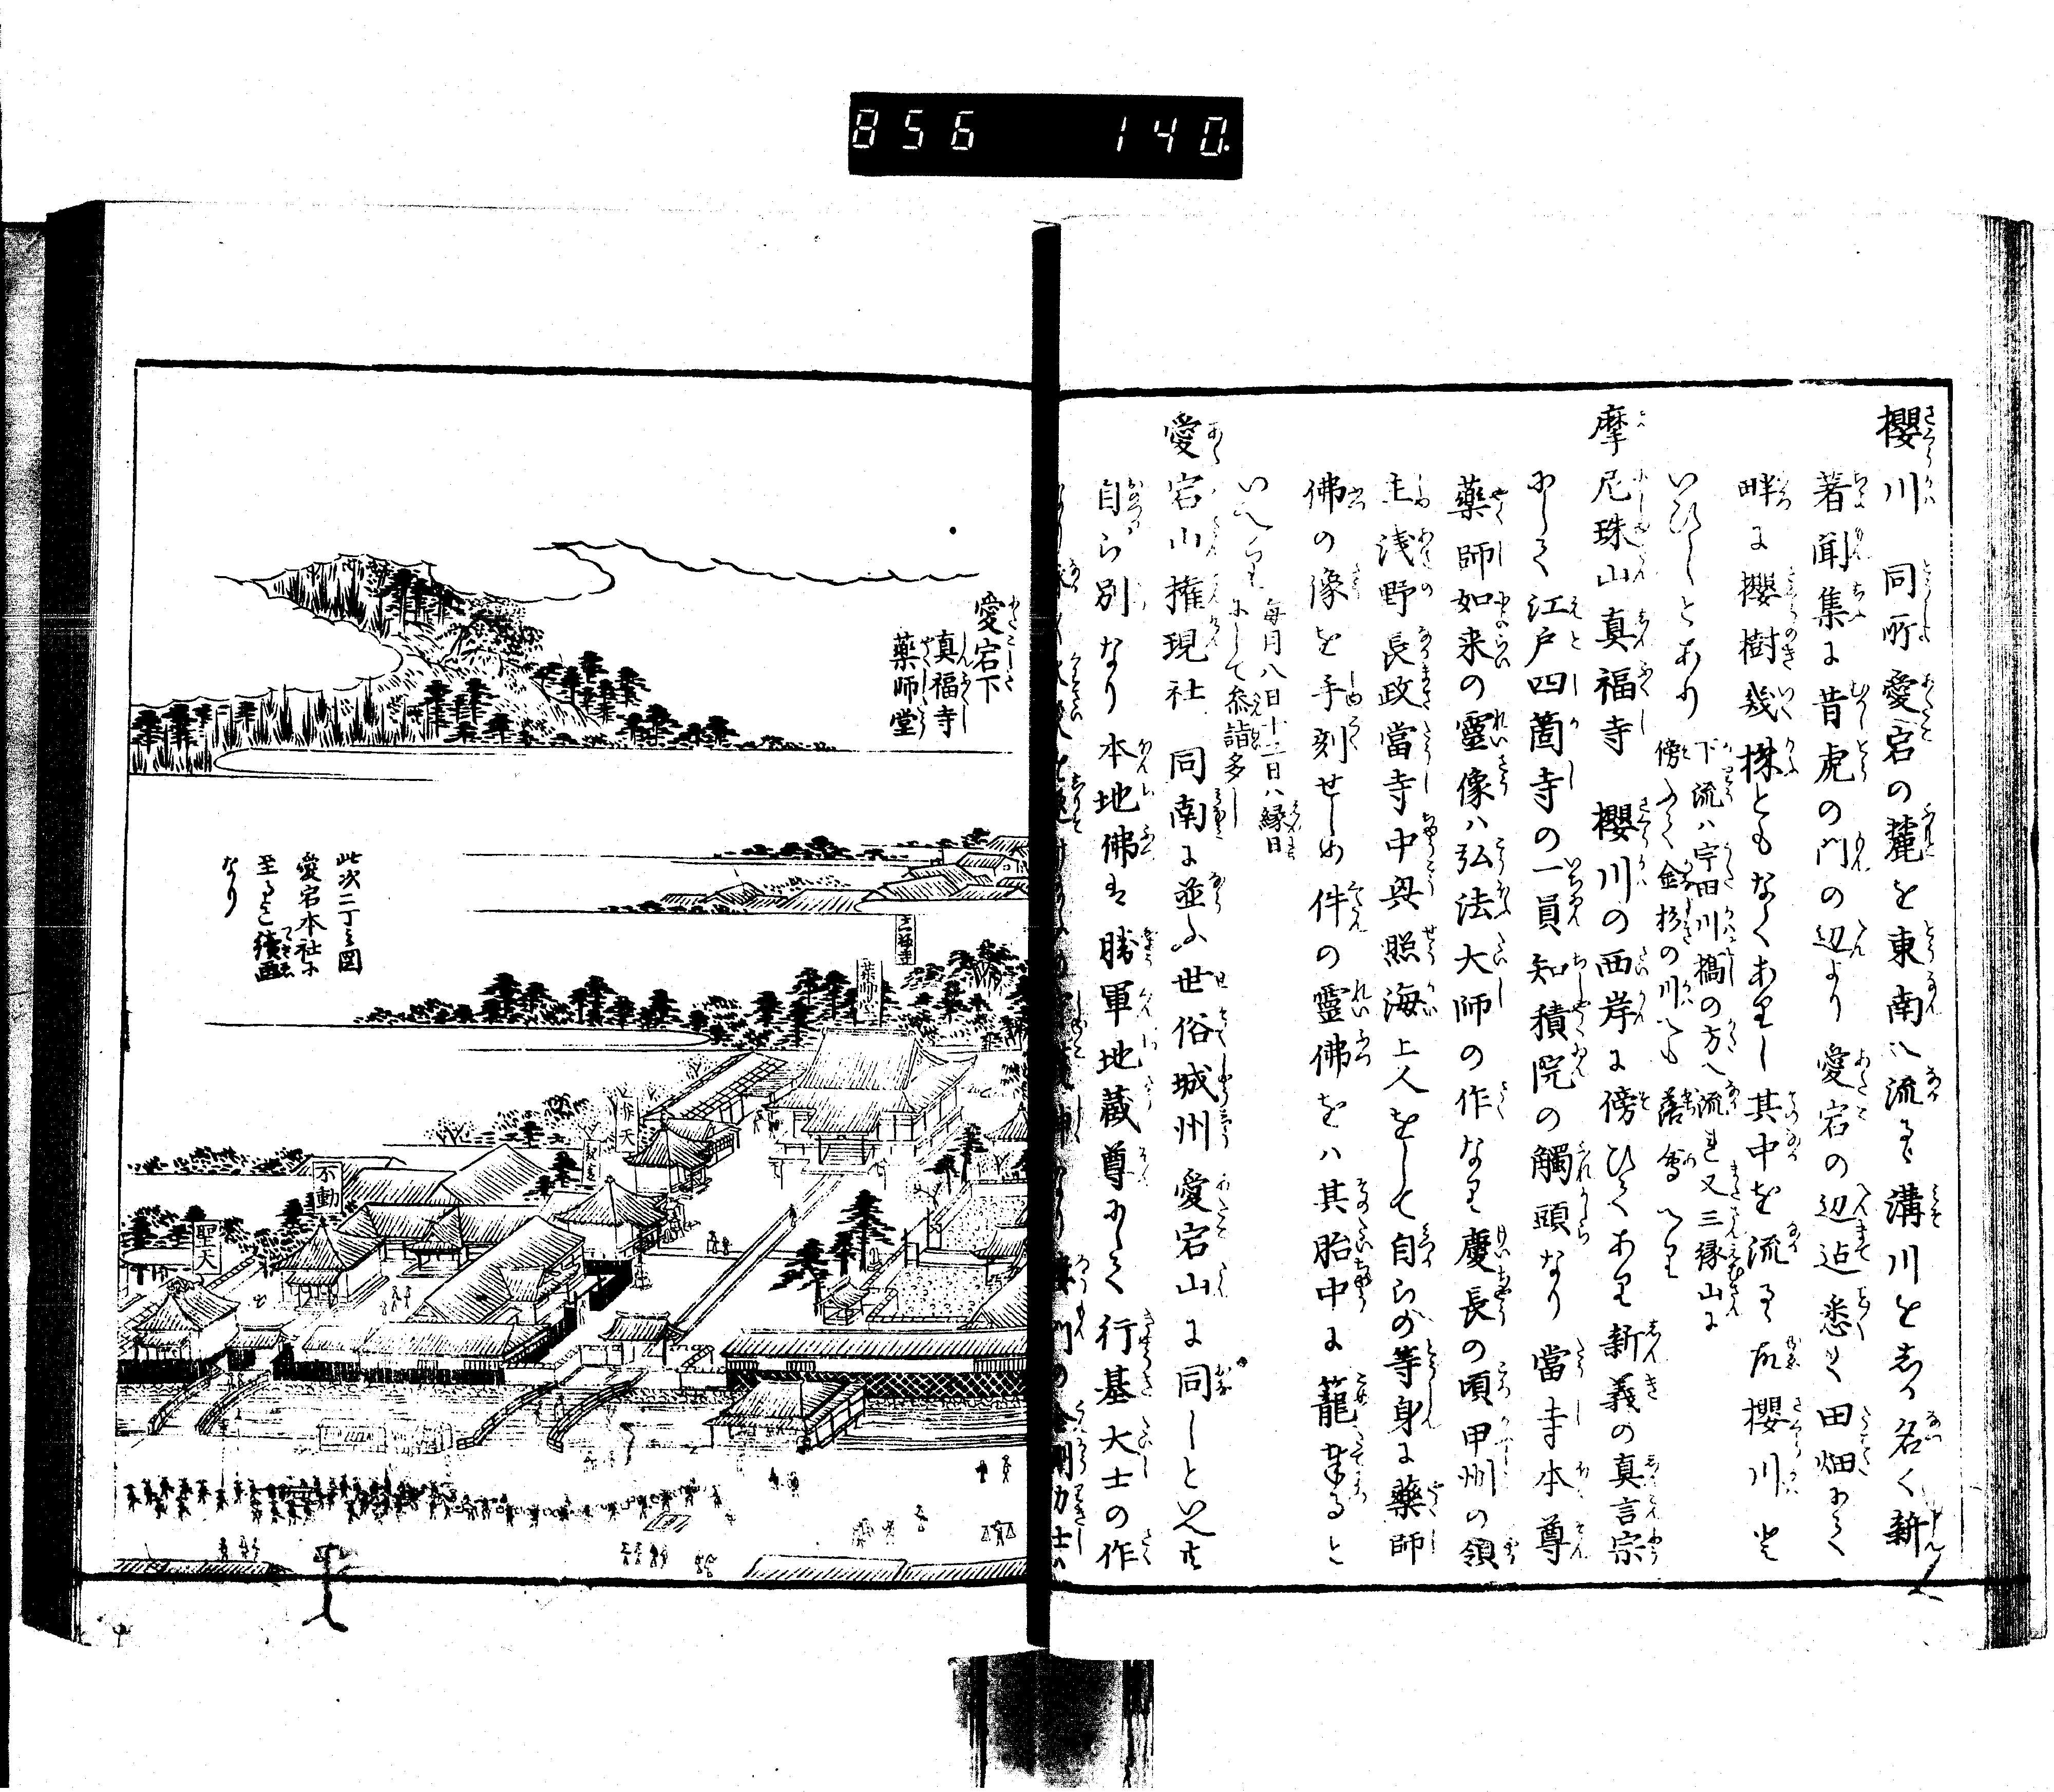 856 140
櫻川 同所愛宕の麓を東南へ流るゝ溝川をしか名く新
著聞集に昔虎の門の辺より愛宕の辺迠悉く田畑にて
畔に櫻樹幾株ともなくありし其中を流るゝ故櫻川と
いひしとあり
下流ハ宇田川橋の方へ流れ又三縁山に
傍ふて金杦の川へも落會へり
摩尼珠山真福寺 櫻川の西岸に傍ひてあり新義の真言宗
にして江戸四箇寺の一員知積院の觸頭なり當寺本尊
藥師如来の靈像ハ弘法大師の作なり慶長の頃甲州の領
主浅野長政當寺中興照海上人をして自らの等身に藥師
佛の像を手刻せしめ件の靈佛をハ其胎中に籠奉ると
いへり
毎月八日十二日ハ縁日
にして参詣多し
愛宕山権現社 同南に並ふ世俗城州愛宕山に同しといへ共
自ら別なり本地佛は勝軍地蔵尊にして行基大士の作
愛宕下
真福寺
藥師堂
此次二丁の図
愛宕本社に
至るまて續画
なり
真福寺
藥師堂
不動
聖天